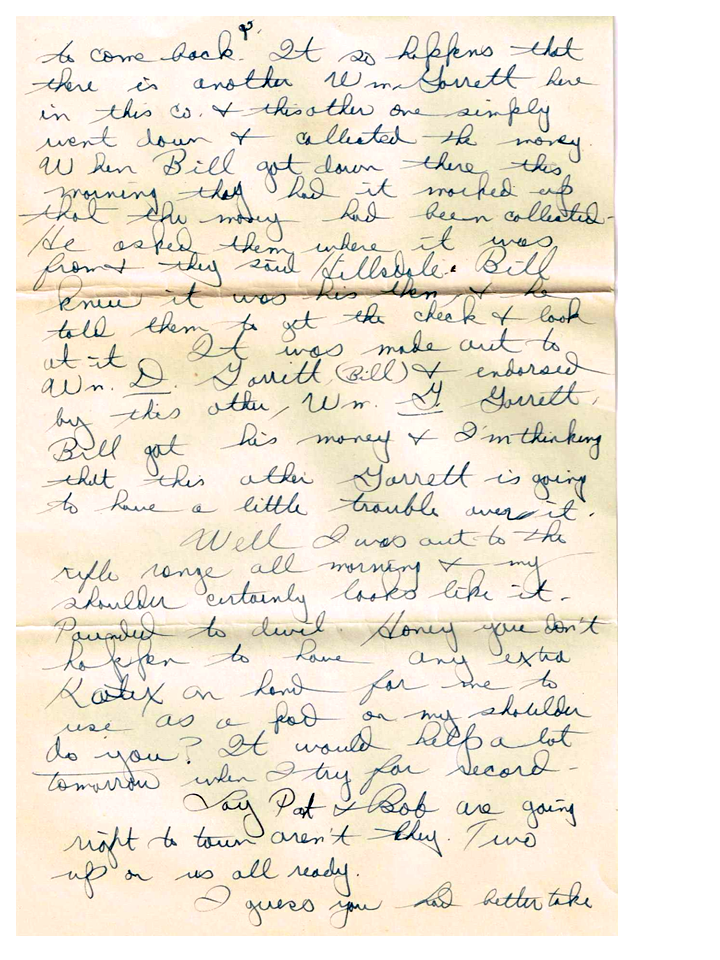 to come back. It so happens that
there is another Wm. Garrett here
in this co. & this other one simply
went down & collected the money.
When Bill got down there this
morning they had it marked up
that the money had been collected.
He asked them where it was
from & they said Hillsdale. Bill
knew it was his then, & he
told them to get the check & look
at it. It was made out to
Wm. D. Garritt (Bill) & endorsed
by this other, Wm. G. Garrett.
Bill got his money & I'm thinking
that this other Garrett is going
to have a little trouble over it.
Well I was out to the
rifle range all morning & my
shoulder certainly looks like it.
Pounded to devil. Honey you don't
happen to have any extra
Kotex on hand for me to
use as a pad on my shoulder
do you? It would help a lot
tomorrow when I try for record -
Say Pat & Bob are going
right to town aren't they. Two
up on us all ready.
I guess you had better take